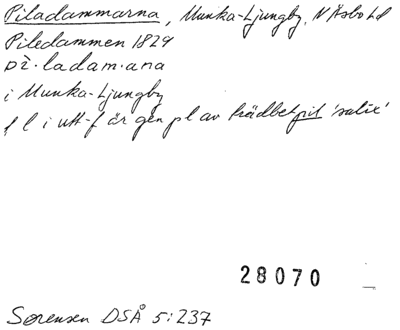 Piladammarna, Munka-Ljungby, N Åsbo hd
Piledammen 1829
pi·ladam·ana
i Munka-Ljungby
f l i utt-f är gen pl av trädbet pil 'salix'
28070
Sørensen DSÅ 5:237